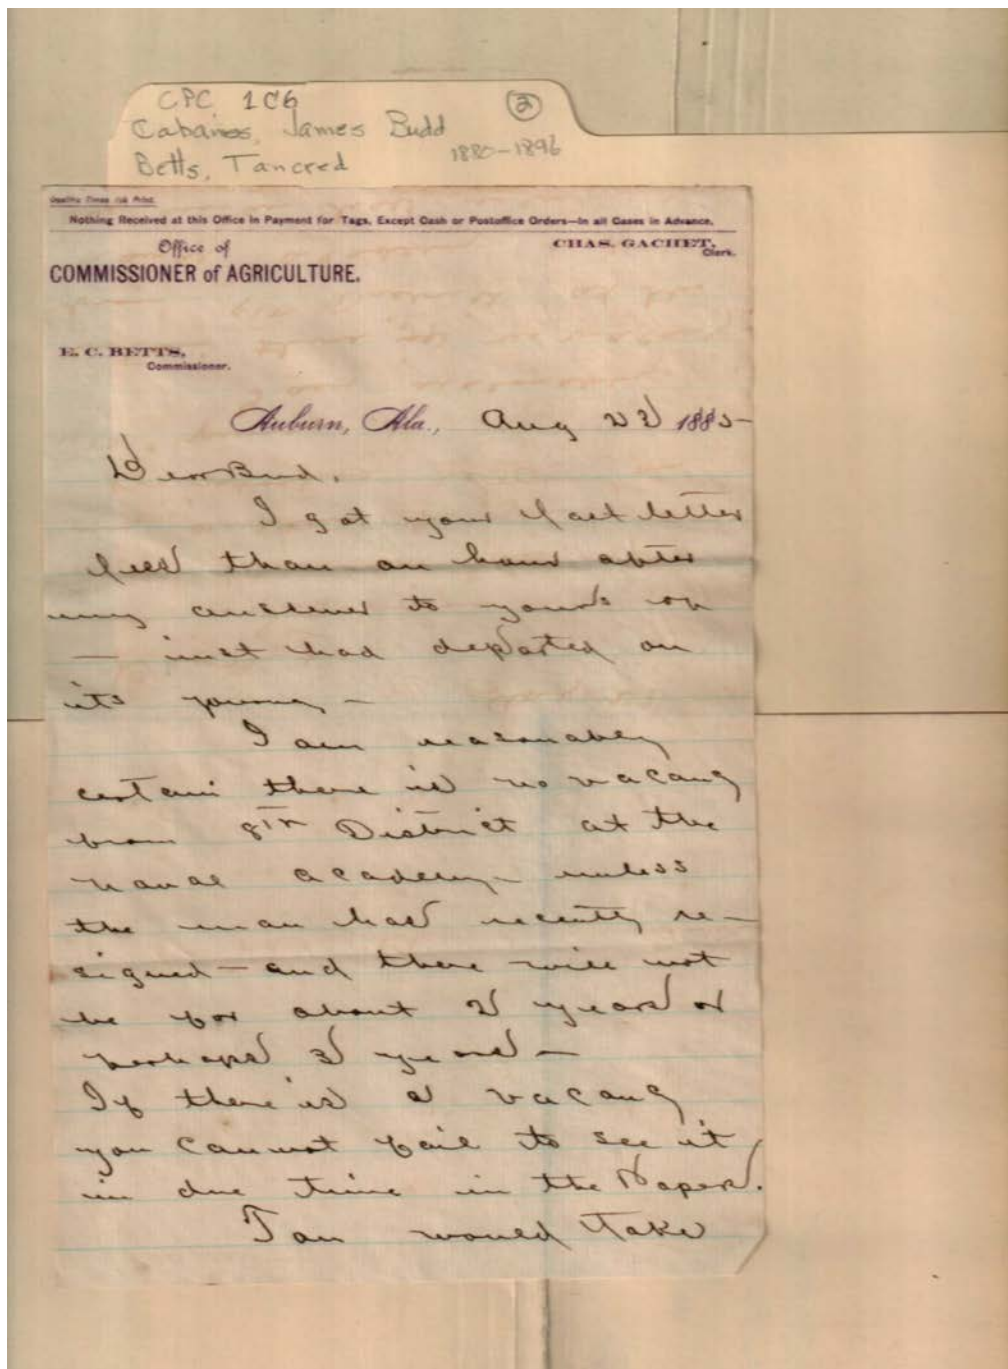 CPC 106 ②
Cabaniss, James Budd
1880-1896
Betts, Tancred
Opelika Times Job Print.
Nothing Received at this Office in Payment for Tags, Except Cash or Postoffice Orders—In all Cases in Advance.
Office of
CHAS. GACHET,
Clerk.
COMMISSIONER of AGRICULTURE.
E. C. BETTS,
Commissioner.
Auburn, Ala., Aug 23 1885-
Dear Bud.
I got your last letter
less than an hour after
my answer to yours of
— inst had departed on
its journey —
I am reasonably
certain there is no vacancy
from 8th District at the
naval academy - unless
the man has recently re-
signed - and there will not
be for about 2 years or
perhaps 3 years —
If there is a vacancy
you cannot fail to see it
in due time in the Papers.
Tan would take